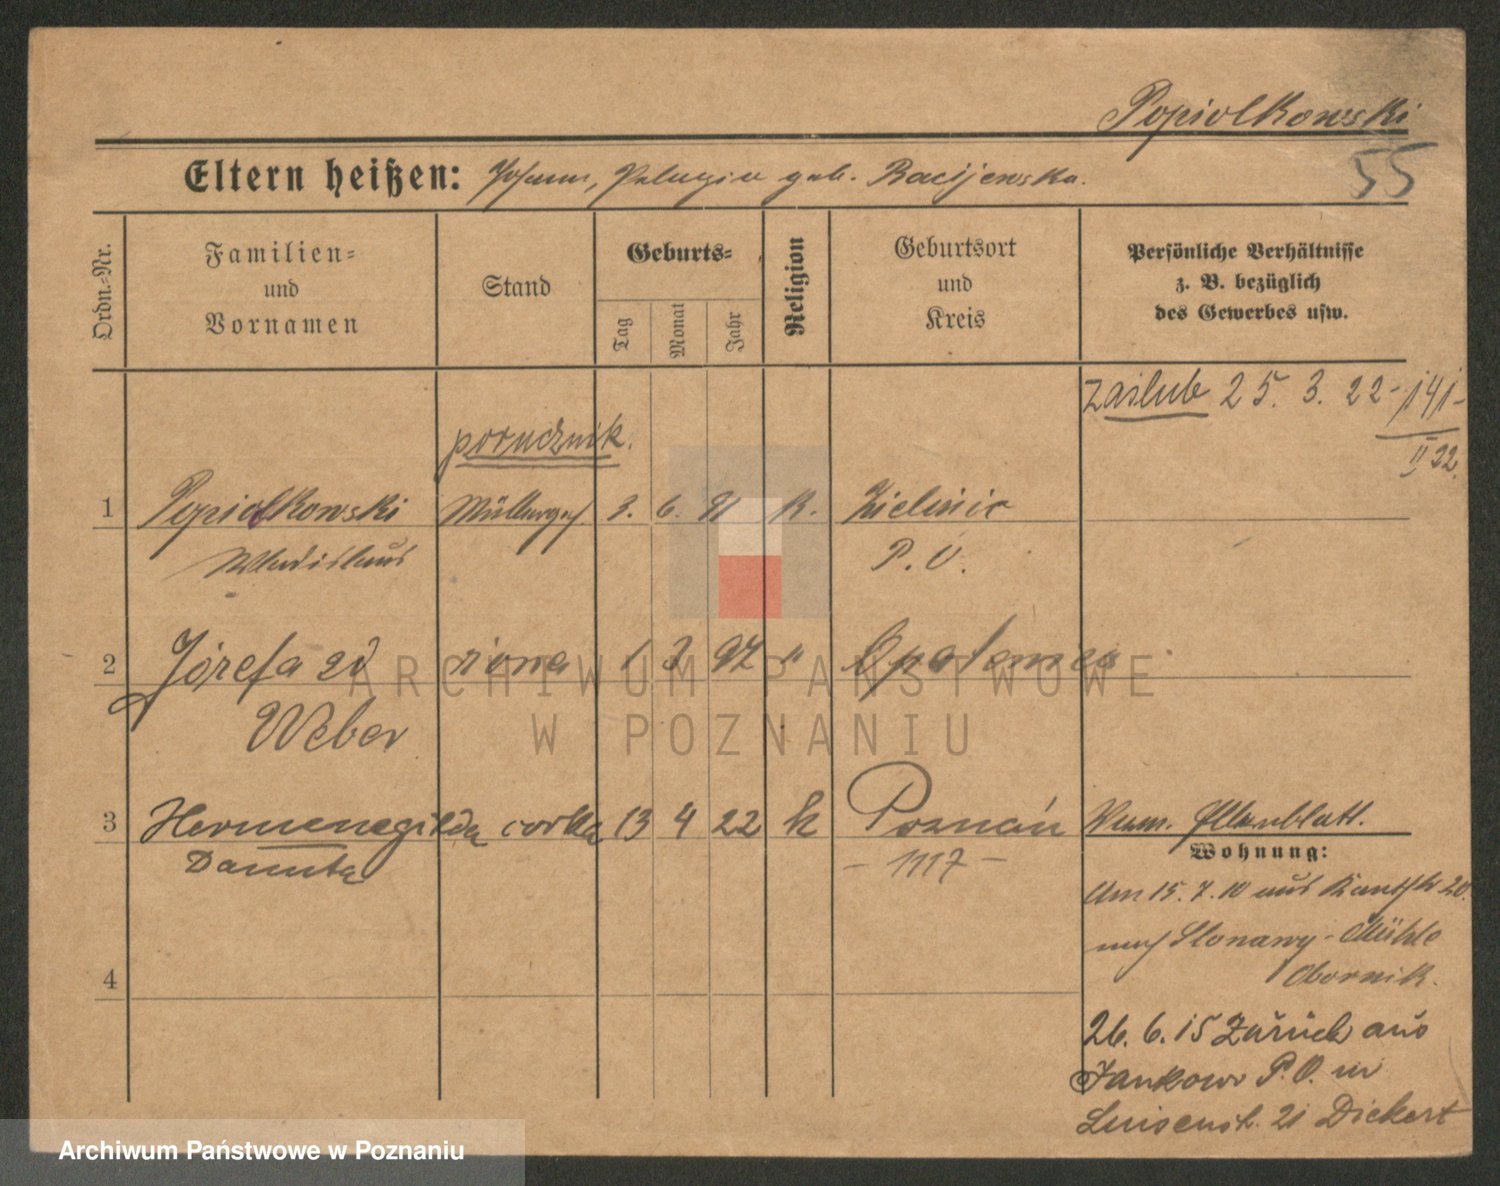 Popiolkowski
55
Eltern heißen: Johann, Pelagia geb. Racijewska.
Ordn.-Nr.
Familien-
und
Vornamen
Stand
Geburts-
Tag
Monat
Jahr
Religion
Geburtsort
und
Kreis
Persönliche Verhältnisse
z. B. bezüglich
des Gewerbes usw.
zaślub 25. 3. 22 - 141 -
II 22.
porucznik.
1 Popiolkowski Müllerges. 3. 6. 91 K. Zieliniec
Wladislaus P. O.
2 Józefa zd żona 1 3 97 " Opalenica
Weber
3 Hermenegilda córka 13 4 22 k Poznań
Danuta - 1117 -
4
Aktenblatt.
Wohnung:
Am 15. 7. 10 aus 20.
nach Slonawy-Mühle
Obornik.
26. 6. 15 Zurück aus
Jankowo P. O. in
Luisenstr. 21 Dickert
ARCHIWUM PAŃSTWOWE
W POZNANIU
Archiwum Państwowe w Poznaniu